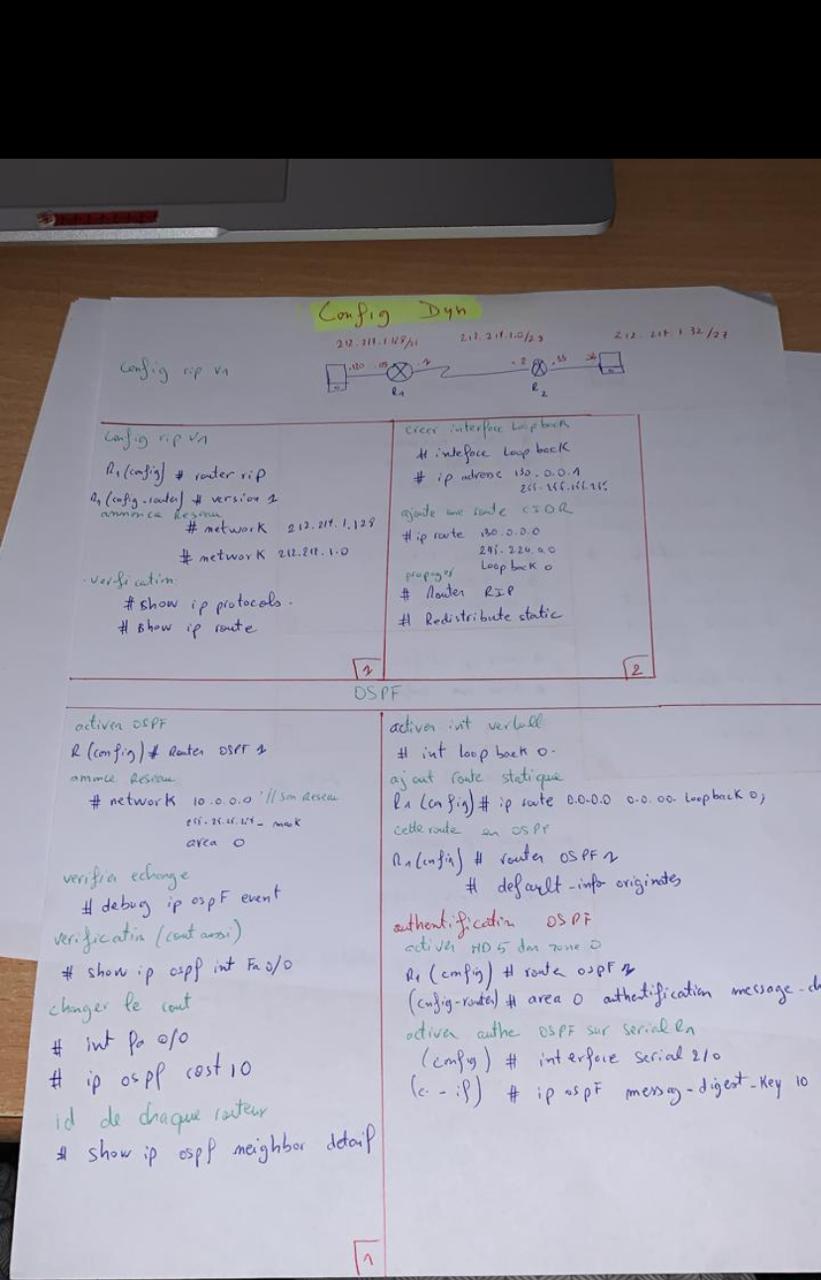 Config Dyn
212.214.1.0/29
212.217.1.32/27
Config rip V1
.1
.2
R1
R2
Config rip V1
R1(config) # router rip
R1(config-router) # version 1
annonce Reseau
# network 212.217.1.128
# network 212.217.1.0
verification
# show ip protocols.
# show ip route
1
creer interface Loopback
# inteface Loop back
# ip adresse 130.0.0.1
ajoute une route CIDR
# ip route 130.0.0.0
Loopback 0
propager
# Router RIP
# Redistribute static
2
OSPF
activer OSPF
R (config) # Router OSPF 1
annonce Reseau
# network 10.0.0.0 // Son Reseau
mask
area 0
verifier echange
# debug ip ospF event
verification (cout aussi)
# show ip ospf int Fa 0/0
changer le cout
# int fa 0/0
# ip ospf cost 10
id de chaque routeur
# show ip ospf neighbor detail
1
activer int
# int loop back 0.
ajout route statique
R1 (config) # ip route 0.0.0.0 0.0.00. Loopback 0;
cette route en OSPF
R1(config) # router OSPF 1
# default-info originates
authentification OSPF
activer MD5 dan zone 0
R1 (config) # route ospF 1
(config-router) # area 0 authentification message-d
activer authe OSPF sur serial R1
(config) # interface serial 2/0
(c. - if) # ip ospF messag-digest-key 10